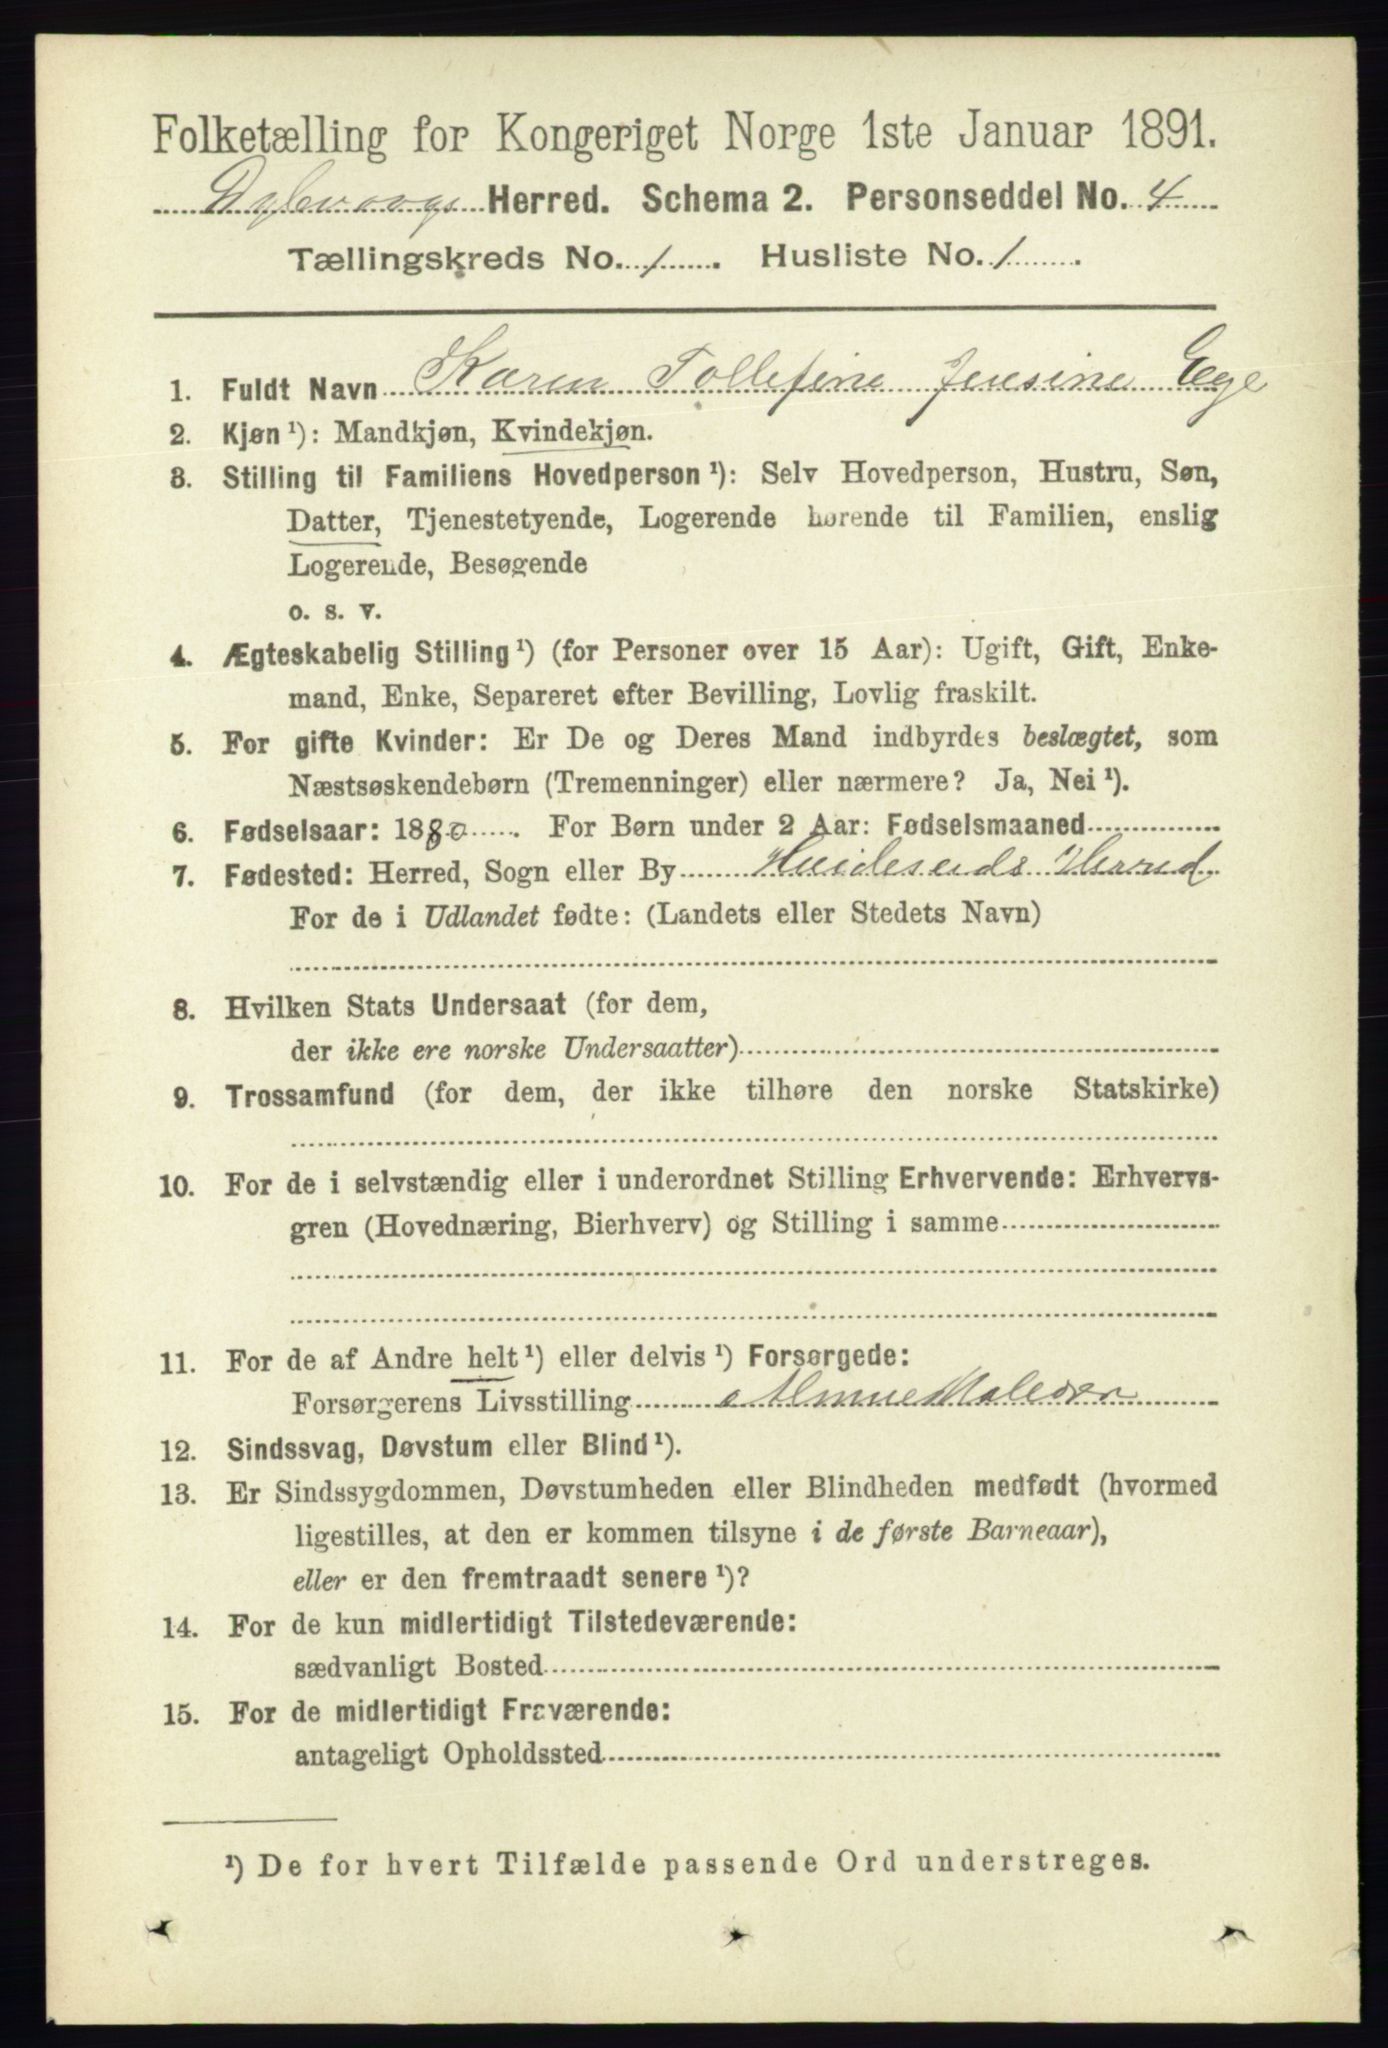 Folketælling for Kongeriget Norge 1ste Januar 1891.
Dybvaags Herred. Schema 2. Personseddel No. 4
Tællingskreds No. 1. Husliste No. 1.
1. Fuldt Navn Karen Tollefine Jensine Ege
2. Kjøn ¹): Mandkjøn, Kvindekjøn.
3. Stilling til Familiens Hovedperson ¹): Selv Hovedperson, Hustru, Søn,
Datter, Tjenestetyende, Logerende hørende til Familien, enslig
Logerende, Besøgende
o. s. v.
4. Ægteskabelig Stilling ¹) (for Personer over 15 Aar): Ugift, Gift, Enke-
mand, Enke, Separeret efter Bevilling, Lovlig fraskilt.
5. For gifte Kvinder: Er De og Deres Mand indbyrdes beslægtet, som
Næstsøskendebørn (Tremenninger) eller nærmere? Ja, Nei ¹).
6. Fødselsaar: 1880. For Børn under 2 Aar: Fødselsmaaned
7. Fødested: Herred, Sogn eller By Hvideseids Herred
For de i Udlandet fødte: (Landets eller Stedets Navn)
8. Hvilken Stats Undersaat (for dem,
der ikke ere norske Undersaatter)
9. Trossamfund (for dem, der ikke tilhøre den norske Statskirke)
10. For de i selvstændig eller i underordnet Stilling Erhvervende: Erhvervs-
gren (Hovednæring, Bierhverv) og Stilling i samme
11. For de af Andre helt ¹) eller delvis ¹) Forsørgede:
Forsørgerens Livsstilling
12. Sindssvag, Døvstum eller Blind ¹).
13. Er Sindssygdommen, Døvstumheden eller Blindheden medfødt (hvormed
ligestilles, at den er kommen tilsyne i de første Barneaar),
eller er den fremtraadt senere ¹)?
14. For de kun midlertidigt Tilstedeværende:
sædvanligt Bosted
15. For de midlertidigt Fraværende:
antageligt Opholdssted
¹) De for hvert Tilfælde passende Ord understreges.